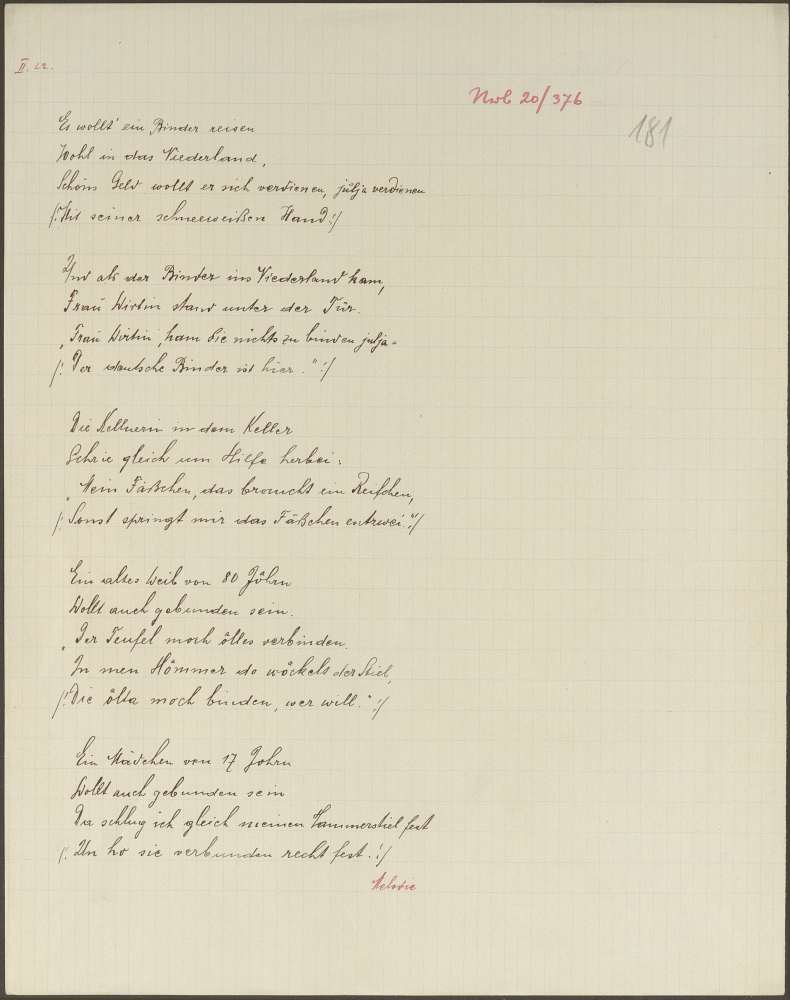 II. 22.
Nwb 20/376
181
Es wollt' ein Binder reisen
Wohl in das Niederland,
Schöns Geld wollt er sich verdienen, julja verdienen
/: Mit seiner schneeweißen Hand :/
Und als der Binder ins Niederland kam,
Frau Wirtin stand unter der Tür.
„Frau Wirtin, ham Sie nichts zu binden julja -
/: Der deutsche Binder ist hier." :/
Die Kellnerin in dem Keller
Schrie gleich um Hilfe herbei:
„Mein Fäßchen, das braucht ein Reifchen,
/: Sonst springt mir das Fäßchen entzwei." :/
Ein altes Weib von 80 Jöhrn
Wollt auch gebunden sein.
„Der Teufel moch ölles verbinden.
In men Hömmer do wöckelt der Stiel,
/: Die ölta moch binden, wer will." :/
Ein Mädchen von 17 Johrn
Wollt auch gebunden sein
Da schlug ich gleich meinen Hammerstiel fest
/: Un ho sie verbunden recht fest. :/
Melodie